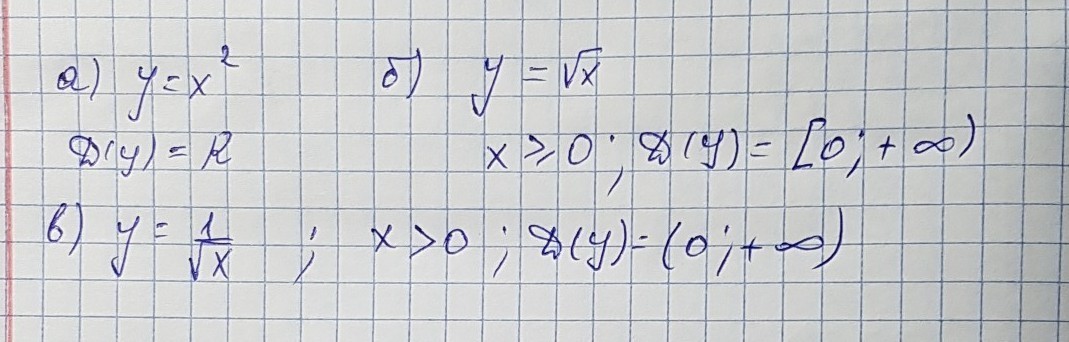 а) y = x² б) y = √x
D(y) = R x ⩾ 0 ; D(y) = [0; + ∞)
в) y = 1/√x ; x > 0 ; D(y) = (0; + ∞)